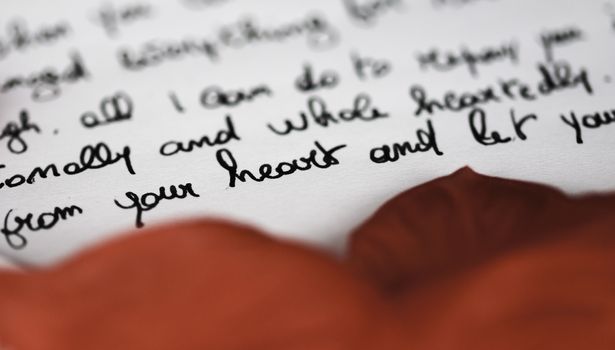 when you
everything for
gh. all I can do to repay you
onally and whole heartedly.
from your heart and let your